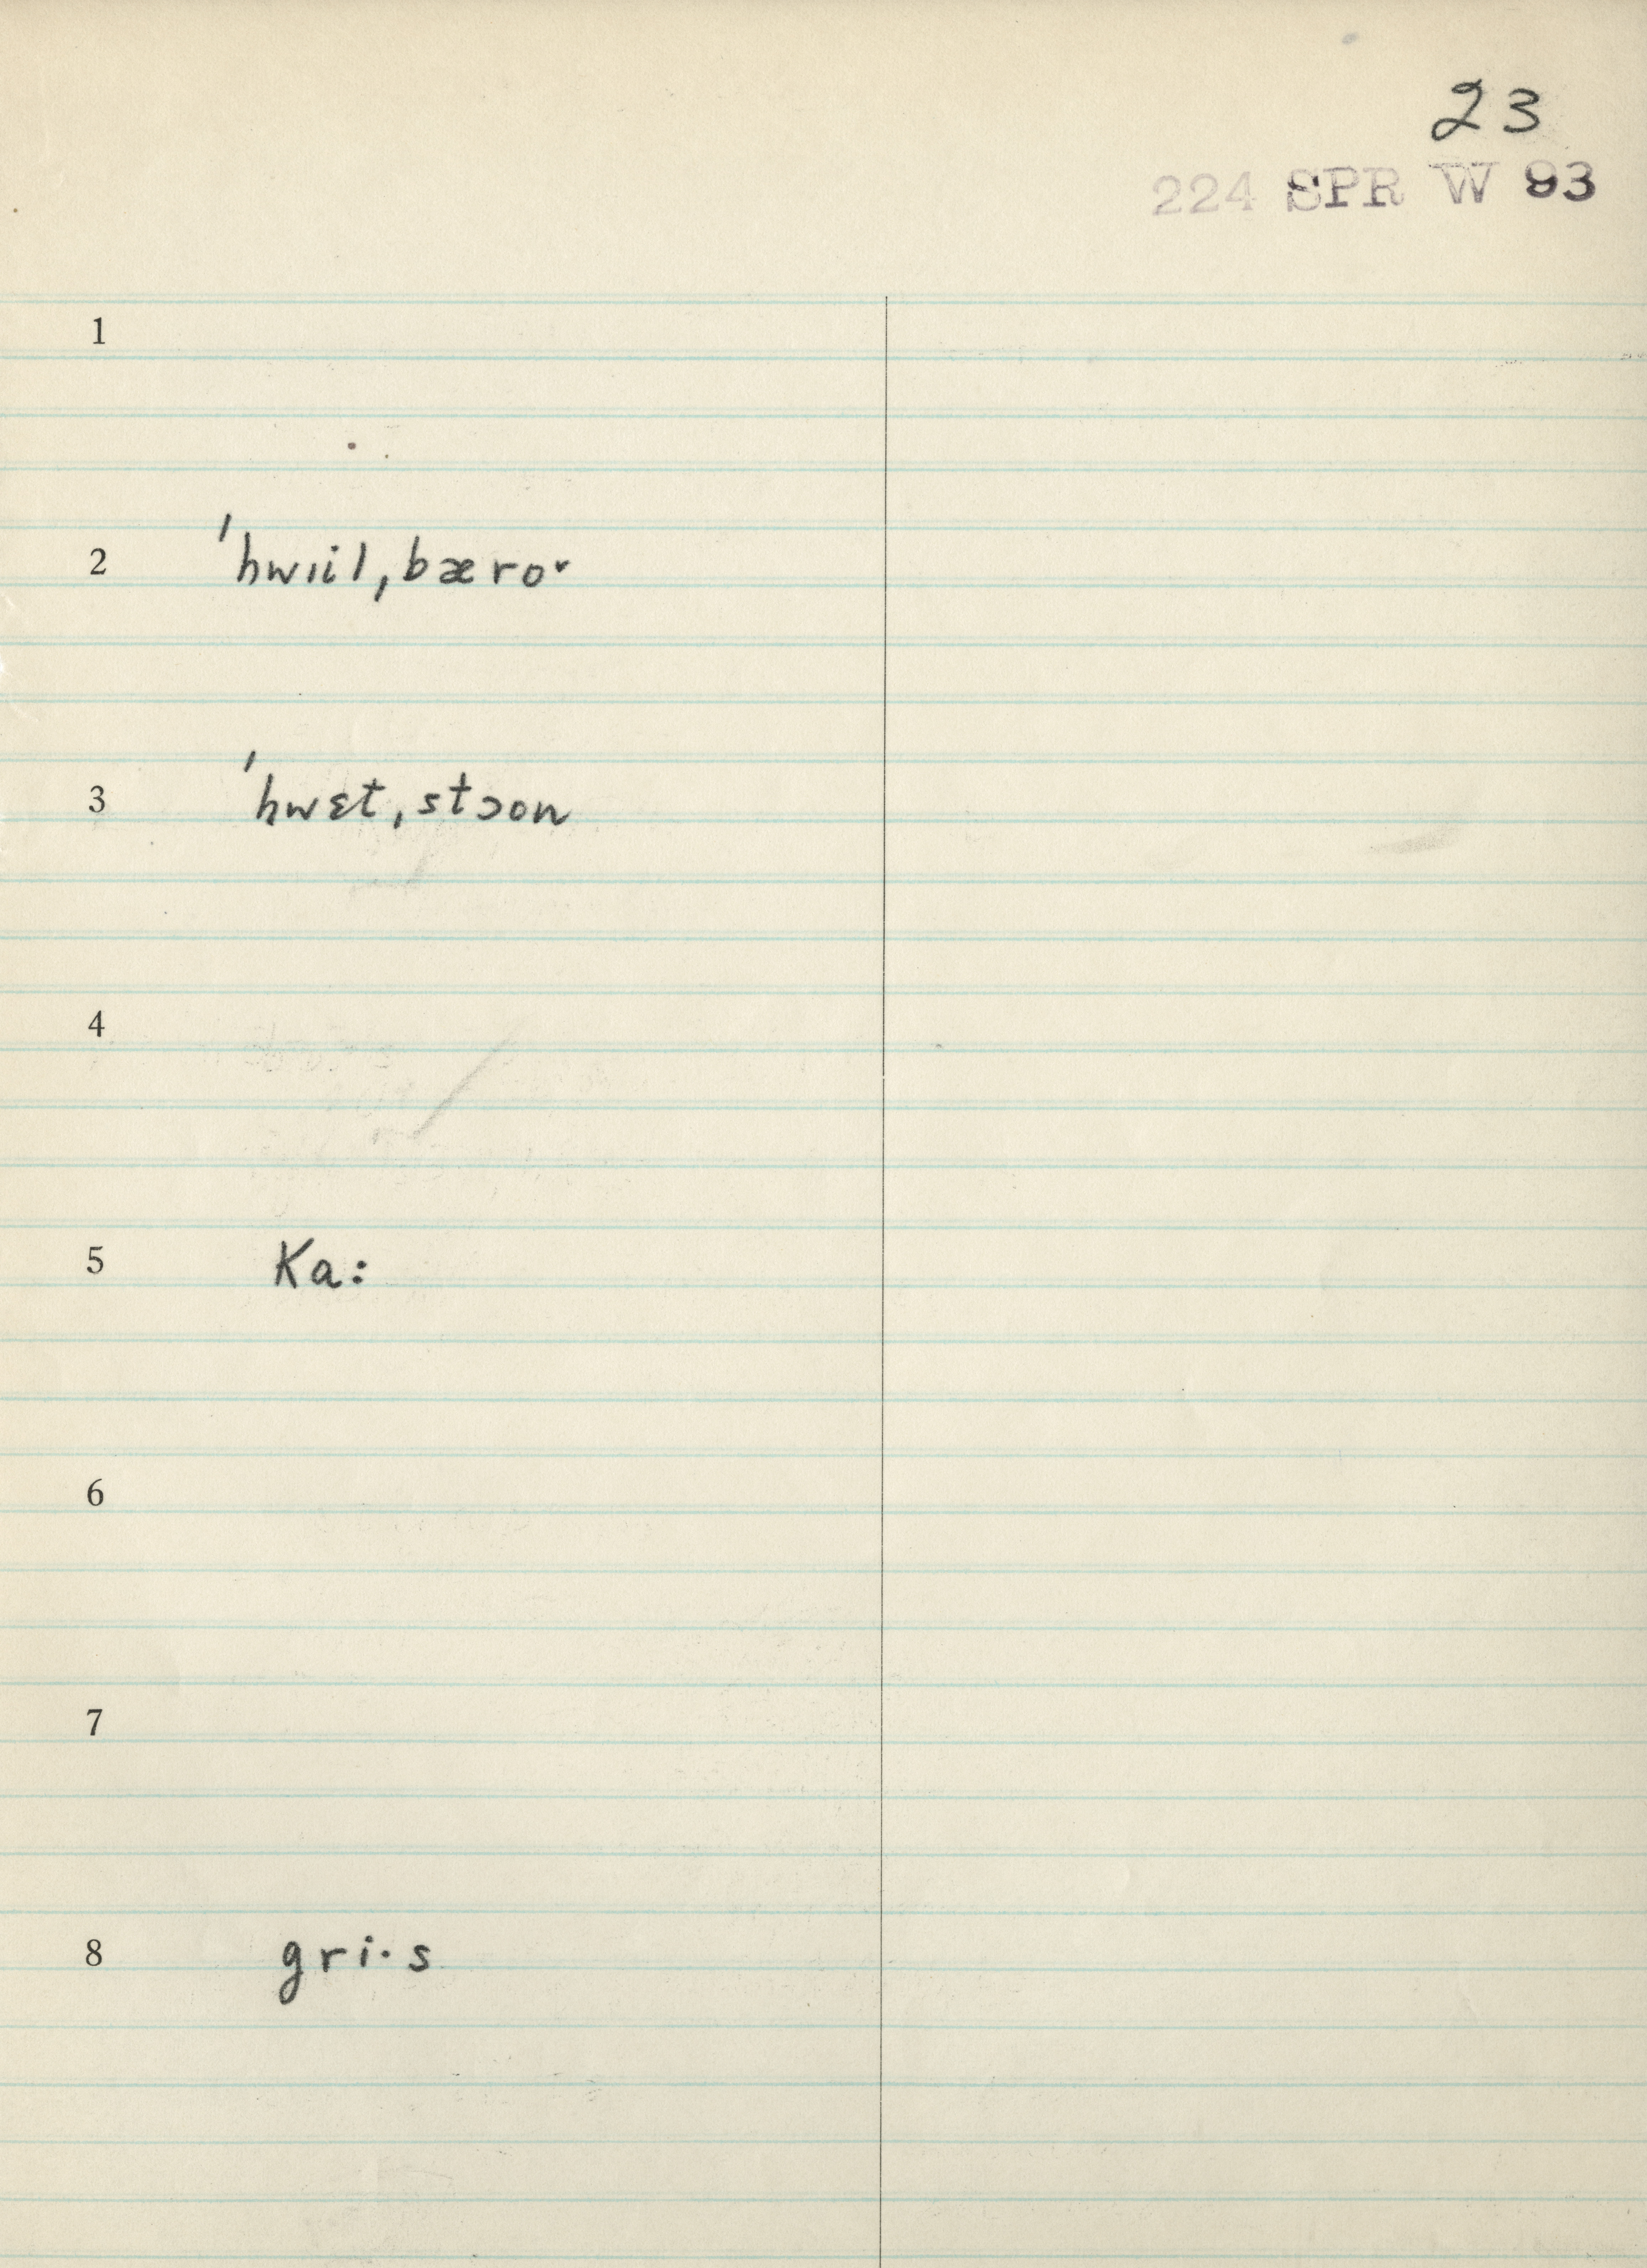 23
224 SPR W 93
1
2 ˈhwɪil,bæroˑ
3 ˈhwɛt,stɔon
4
5 Ka:
6
7
8 gri·s